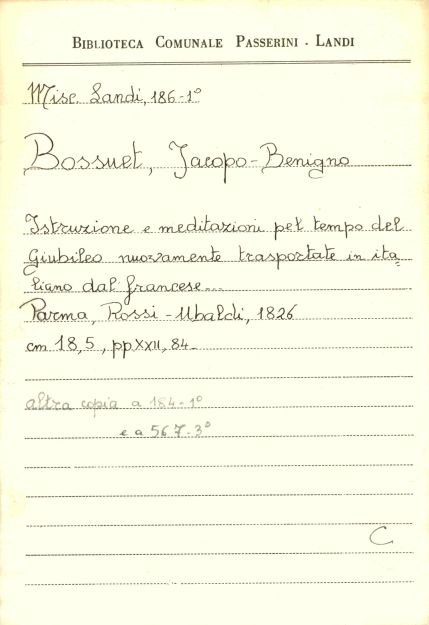 BIBLIOTECA COMUNALE PASSERINI - LANDI
Misc. Landi, 186-1°
Bossuet, Jacopo-Benigno
Istruzione e meditazioni pel tempo del
Giubileo nuovamente trasportate in ita=
liano dal francese...
Parma, Rossi-Ubaldi, 1826
cm 18,5, pp XXII, 84.
altra copia a 184-1°
e a 567-3°
C